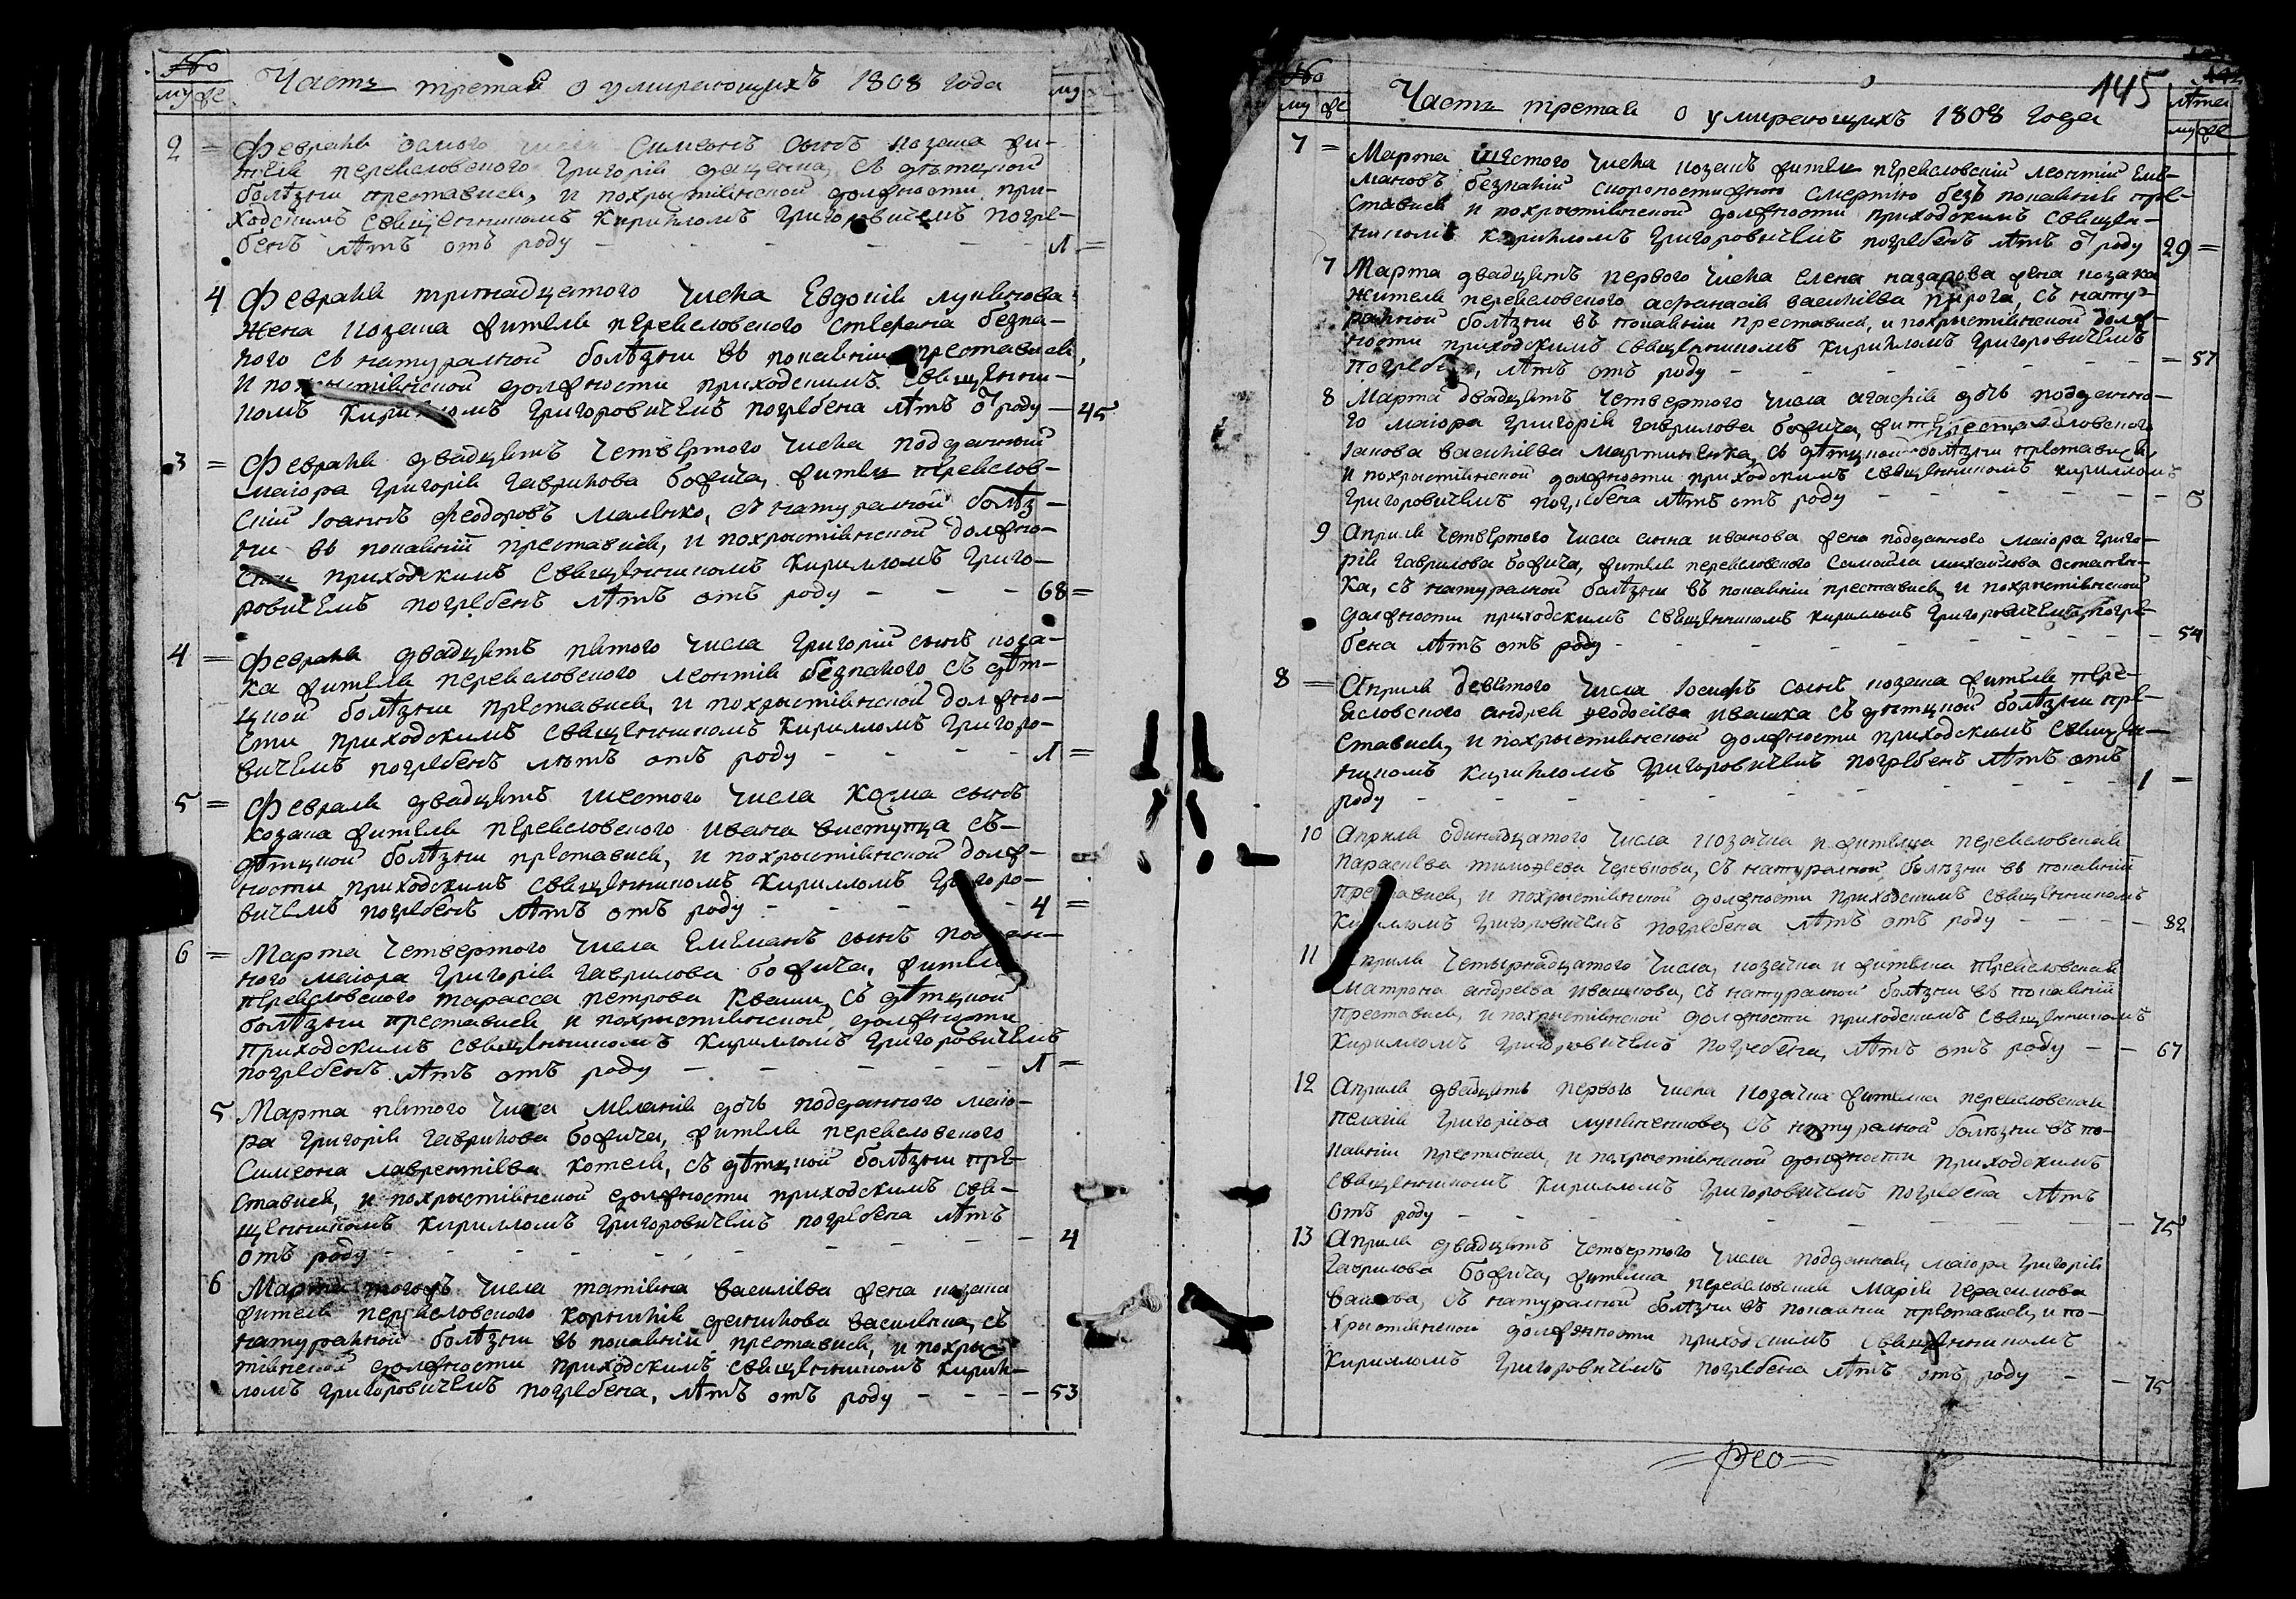 №
му фе
Часть третая о умирающихъ 1808 года
му
2 = Февраля осмого числа Симеонъ сынъ козака жи-
теля переясловского Григорія, съ дѣтцкой
болѣзни преставися, и похрыстіянской должности при-
ходскимъ священникомъ Кирилломъ Григоровичемъ погре-
бенъ лѣтъ отъ роду - - - - - - 1 =
4 Февраля тринадцатого числа Евдокія лукянова
жена козака жителя переясловского стефана безпа-
лого съ натуралной болѣзни въ покаяніи преставися,
И похрыстіянской должности приходскимъ священни-
комъ Кирилломъ Григоровичемъ погребена лѣтъ о роду - 45
3 = Февраля двадцять четвертого числа подданный
маіора Григорія Гаврилова божича, житель переяслов-
скій Іоаннъ Феодоровъ малѣнко, съ натуралной болѣз-
ни въ покаяніи преставися, и похрыстіянской должно-
сти приходскимъ священникомъ Кирилломъ Григо-
ровичемъ погребенъ лѣтъ отъ роду - - - 68 =
4 = Февраля двадцять пятого числа Григорій сынъ коза-
ка жителя переясловского леонтія безпалого съ дѣт-
цкой болѣзни преставися, и похрыстіянской должно-
сти приходскимъ священникомъ Кирилломъ Григоро-
вичемъ погребенъ лѣтъ отъ роду - - - - 1 =
5 = Февраля двадцять шестого числа Козма сынъ
козака жителя переясловского ивана виступца съ-
дѣтцкой болѣзни преставися, и похрыстіянской долж-
ности приходскимъ священникомъ Кирилломъ Григоро-
вичемъ погребенъ лѣтъ отъ роду - - - - 4 =
6 = Марта четвертого числа Емеліанъ сынъ поддан-
ного маіора Григорія Гаврилова божича, жителя
переясловского тарасса петрова Кваши, съ дѣтцкой
болѣзни преставися и похрыстіянской должности
приходскимъ священникомъ Кирилломъ Григоровичемъ
погребенъ лѣтъ отъ роду - - - - - 1 =
5 Марта пятого числа Меланія дочь подданного маіо-
ра Григорія Гаврилова божича, жителя переясловского
Симеона лаврентіева котеля, съ дѣтцкой болѣзни пре-
ставися, и похрыстіянской должности приходскимъ свя-
щенникомъ Кирилломъ Григоровичемъ погребена лѣтъ
отъ роду - - - - - - - - - - 4
6 Марта тогожъ числа татіяна василіева жена козака
жителя переясловского корнилія данилова василенка, съ
натуралной болѣзни въ покаяніи преставися, и похрыс
тіянской должности приходскимъ священникомъ Кирил-
ломъ Григоровичемъ погребена, лѣтъ отъ роду - - - - 53
145
№
му фе
Часть третая о умирающихъ 1808 года
лѣта
му фе
7 = Марта шестого числа козакъ житель переясловскій леонтій
безпалій скоропостижною смертію безъ покаянія пре-
ставися и похрыстіянской должности приходскимъ священ-
никомъ Кирилломъ Григоровичемъ погребенъ лѣтъ о роду 29 =
7 Марта двадцять первого числа елена назарова жена козака
жителя переясловского афанасія василіева пирога, съ нату-
ралной болѣзни въ покаяніи преставися, и похрыстіянской долж-
ности приходскимъ священникомъ Кирилломъ Григоровичемъ
погребена, лѣтъ отъ роду - - - - - - - 57
8 Марта двадцять четвертого числа агафія дочь подданно-
го маіора Григорія Гаврилова божича,
Іакова василіева мартинѣнка, съ дѣтцкой болѣзни преставися
И похрыстіянской должности приходскимъ священникомъ Кирилломъ
Григоровичемъ погребена лѣтъ отъ роду - - - - - - - 5
9 Априля четвертого числа анна иванова жена подданного маіора Григо-
рія Гаврилова божича, жителя переясловского Самойла михайлова
съ натуралной болѣзни въ покаяніи преставися, и похрыстіянской
должности приходскимъ священникомъ Кирилломъ Григоровичемъ погре-
бена лѣтъ отъ роду - - - - - - - - 54
8 = Априля девятого числа Іосифъ сынъ козака жителя пере-
ясловского андрея феодосіева ивашка съ дѣтцкой болѣзни пре-
ставися, и похрыстіянской должности приходскимъ священ-
никомъ Кирилломъ Григоровичемъ погребенъ лѣтъ отъ
роду - - - - - - - - - - 1 =
10 Априля одинадцатого числа козачка и жителка переясловская
параскева тимофеева черевкова, съ натуралной болѣзни въ покаяніи
преставися, и похрыстіянской должности приходскимъ священникомъ
Кирилломъ Григоровичемъ погребена лѣтъ отъ роду - - - - 82
11 Априля четырнадцатого числа, козачка и жителка переясловская
Матрона андреева ивашкова, съ натуралной болѣзни въ покаяніи
преставися, и похрыстіянской должности приходскимъ священникомъ
Кирилломъ Григоровичемъ погребена, лѣтъ отъ роду - - 67
12 Априля двадцять первого числа козачка жителка переясловская
пелагія Григоріева съ натуралной болѣзни въ по-
каяніи преставися, и похрыстіянской должности приходскимъ
священникомъ Кирилломъ Григоровичемъ погребена лѣтъ
отъ роду - - - - - - - - - - 75
13 Априля двадцять четвертого числа подданная маіора Григорія
Гаврилова божича, жителка переясловская Марія Герасимова
съ натуралной болѣзни въ покаяніи преставися, и по-
хрыстіянской должности приходскимъ священникомъ
Кирилломъ Григоровичемъ погребена лѣтъ отъ роду - - 75